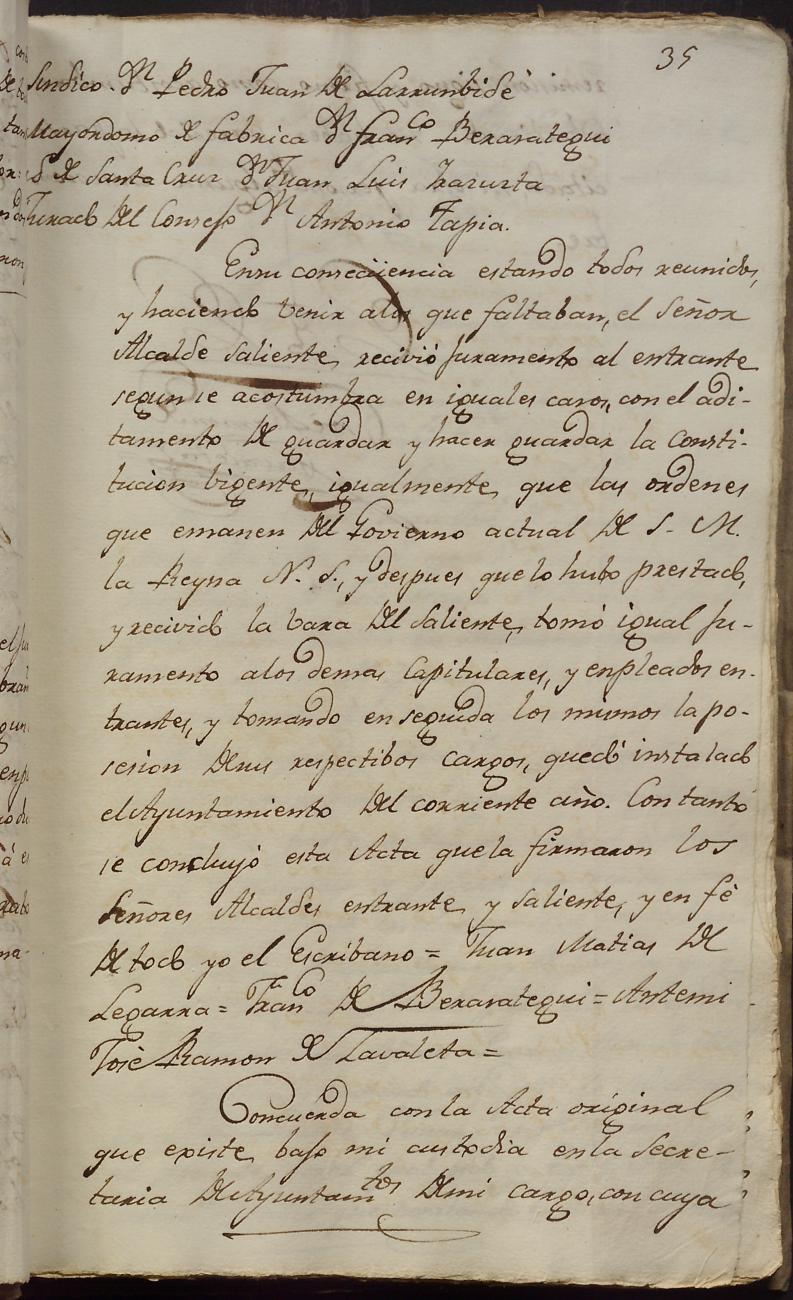 35
Sindico. Dn Pedro Juan de Larrunbide
Mayordomo de fabrica Dn Franco Berasategui
Yd de Santa Cruz Dn Juan Luis Yrazusta
Jurado del Consejo Dn Antonio Tapia.
En su consecüencia estando todos reunidos,
y haciendo venir a los que faltaban, el Señor
Alcalde saliente, recivió juramento al entrante
segun se acostumbra en iguales casos, con el adi-
tamento de guardar y hacer guardar la Consti-
tucion bigente, igualmente, que las ordenes
que emanen del Govierno actual de S. M.
la Reyna N. S., y despues que lo hubo prestado,
y recivido la bara del Saliente, tomó igual ju-
ramento a los demas Capitulares, y enpleados en-
trantes, y tomando en seguida los mismos la po-
sesion de sus respectibos cargos, quedó instalado
el Ayuntamiento del corriente año. Con tanto
se concluyó esta Acta que la firmaron los
Señores Alcaldes entrante, y saliente, y en fé
de todo yo el Escribano = Juan Matias de
Legarra = Franco de Berasategui = Antemi
José Ramon de Zavaleta =
Concuerda con la Acta original
que existe, bajo mi custodia en la Secre-
taria de Ayuntamtos de mi cargo, con cuya